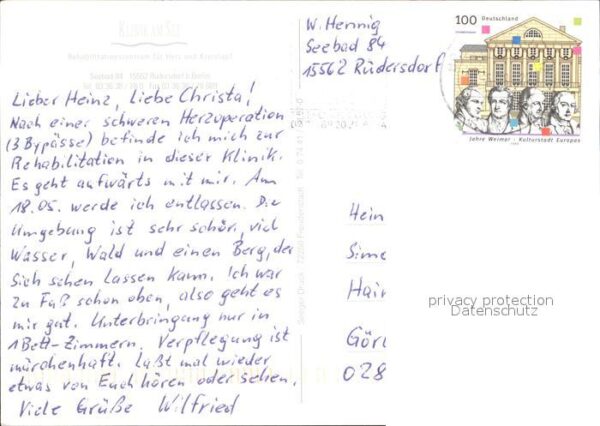 KLINIK AM SEE
Rehabilitationszentrum für Herz und Kreislauf
Seebad 84 15562 Rüdersdorf b. Berlin
Lieber Heinz, Liebe Christa!
Nach einer schweren Herzoperation
(3 Bypässe) befinde ich mich zur
Rehabilitation in dieser Klinik.
Es geht aufwärts mit mir. Am
18.05. werde ich entlassen. Die
Umgebung ist sehr schön, viel
Wasser, Wald und einen Berg, der
sich sehen lassen kann. Ich war
zu Fuß schon oben, also geht es
mir gut. Unterbringung nur in
1Bett-Zimmern. Verpflegung ist
märchenhaft. Laßt mal wieder
etwas von Euch hören oder sehen.
Viele Grüße Wilfried
W. Hennig
Seebad 84
15562 Rüdersdorf
100 Deutschland
Jahre Weimar - Kulturstadt Europas
Hein
Sime
Hain
Görl
028
privacy protection
Datenschutz